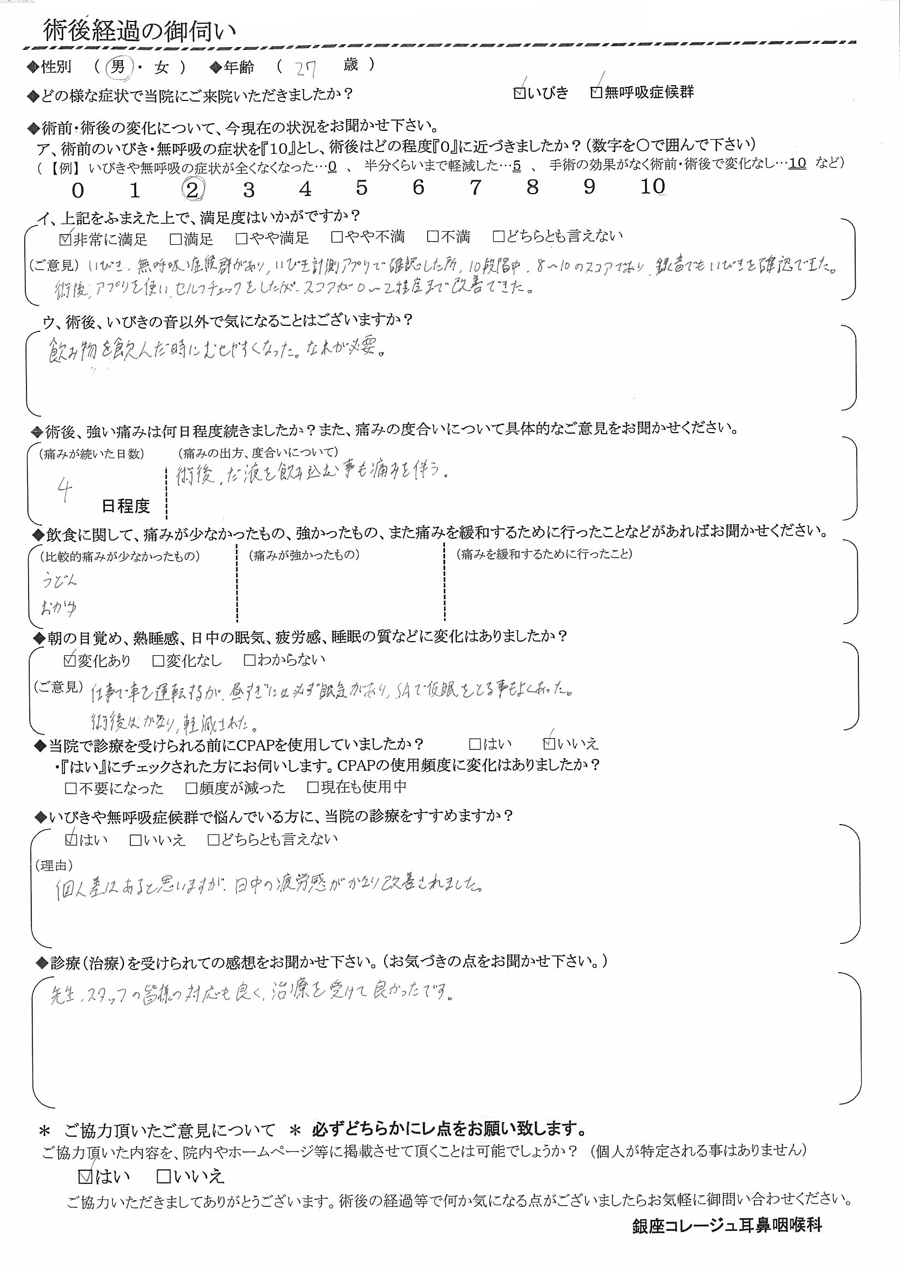 術後経過の御伺い
◆性別 ( 男 ・ 女 ) ◆年齢 ( 27 歳 )
◆どの様な症状で当院にご来院いただきましたか? ☑いびき ☑無呼吸症候群
◆術前・術後の変化について、今現在の状況をお聞かせ下さい。
ア、術前のいびき・無呼吸の症状を『10』とし、術後はどの程度『0』に近づきましたか?(数字を〇で囲んで下さい)
(【例】いびきや無呼吸の症状が全くなくなった…0 、 半分くらいまで軽減した…5 、 手術の効果がなく術前・術後で変化なし…10 など)
0 1 2 3 4 5 6 7 8 9 10
イ、上記をふまえた上で、満足度はいかがですか?
☑非常に満足 □満足 □やや満足 □やや不満 □不満 □どちらとも言えない
(ご意見) いびき、無呼吸症候群があり、いびき計測アプリで確認した所、10段階中、8~10のスコアであり、録音でもいびきを確認できた。
術後、アプリを使い、セルフチェックをしたが、スコアが0~2程度まで改善できた。
ウ、術後、いびきの音以外で気になることはございますか?
飲み物を飲んだ時にむせやすくなった。なれが必要。
◆術後、強い痛みは何日程度続きましたか?また、痛みの度合いについて具体的なご意見をお聞かせください。
(痛みが続いた日数) (痛みの出方、度合いについて)
術後、だ液を飲み込む事も痛みを伴う。
4 日程度
◆飲食に関して、痛みが少なかったもの、強かったもの、また痛みを緩和するために行ったことなどがあればお聞かせください。
(比較的痛みが少なかったもの) (痛みが強かったもの) (痛みを緩和するために行ったこと)
うどん
おかゆ
◆朝の目覚め、熟睡感、日中の眠気、疲労感、睡眠の質などに変化はありましたか?
☑変化あり □変化なし □わからない
(ご意見) 仕事で車を運転するが、昼すぎには必ず眠気があり、SAで仮眠をとる事もよくあった。
術後はかなり、軽減された。
◆当院で診療を受けられる前にCPAPを使用していましたか? □はい ☑いいえ
・『はい』にチェックされた方にお伺いします。CPAPの使用頻度に変化はありましたか?
□不要になった □頻度が減った □現在も使用中
◆いびきや無呼吸症候群で悩んでいる方に、当院の診療をすすめますか?
☑はい □いいえ □どちらとも言えない
(理由)
個人差はあると思いますが、日中の疲労感がかなり改善されました。
◆診療(治療)を受けられての感想をお聞かせ下さい。(お気づきの点をお聞かせ下さい。)
先生、スタッフの皆様の対応も良く、治療を受けて良かったです。
＊ ご協力頂いたご意見について ＊ 必ずどちらかにレ点をお願い致します。
ご協力頂いた内容を、院内やホームページ等に掲載させて頂くことは可能でしょうか? (個人が特定される事はありません)
☑はい □いいえ
ご協力いただきましてありがとうございます。術後の経過等で何か気になる点がございましたらお気軽に御問い合わせください。
銀座コレージュ耳鼻咽喉科